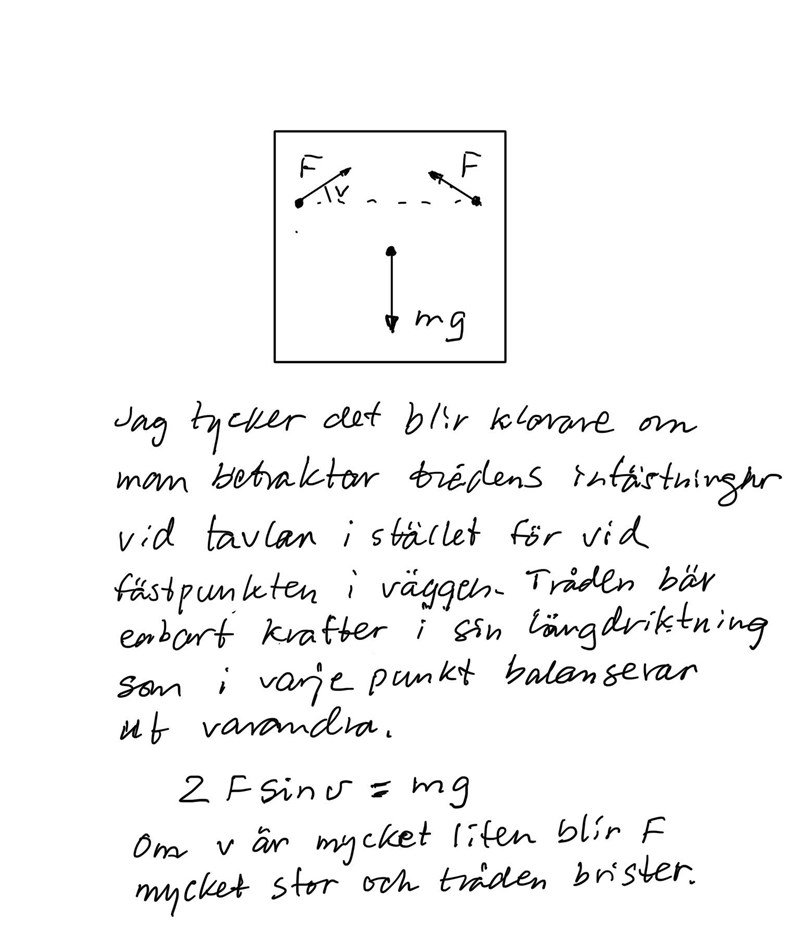 F F
v
mg
Jag tycker det blir klarare om
man betraktar trådens infästningar
vid tavlan i stället för vid
fästpunkten i väggen. Tråden bär
enbart krafter i sin längdriktning
som i varje punkt balanserar
ut varandra.
2 F sin v = mg
Om v är mycket liten blir F
mycket stor och tråden brister.